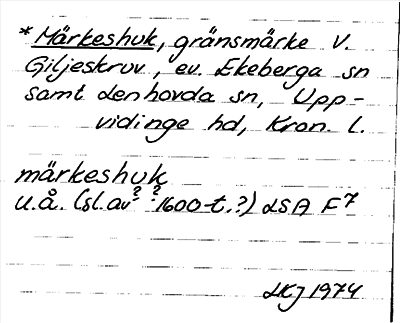 *Märkeshuk, gränsmärke V.
Giljeskruv, ev. Ekeberga sn
samt Lenhovda sn, Upp-
vidinge hd, Kron. l.
märkeshuk
u.å. (sl. av? ? 1600-t.?) LSA F 7
LKJ 1974